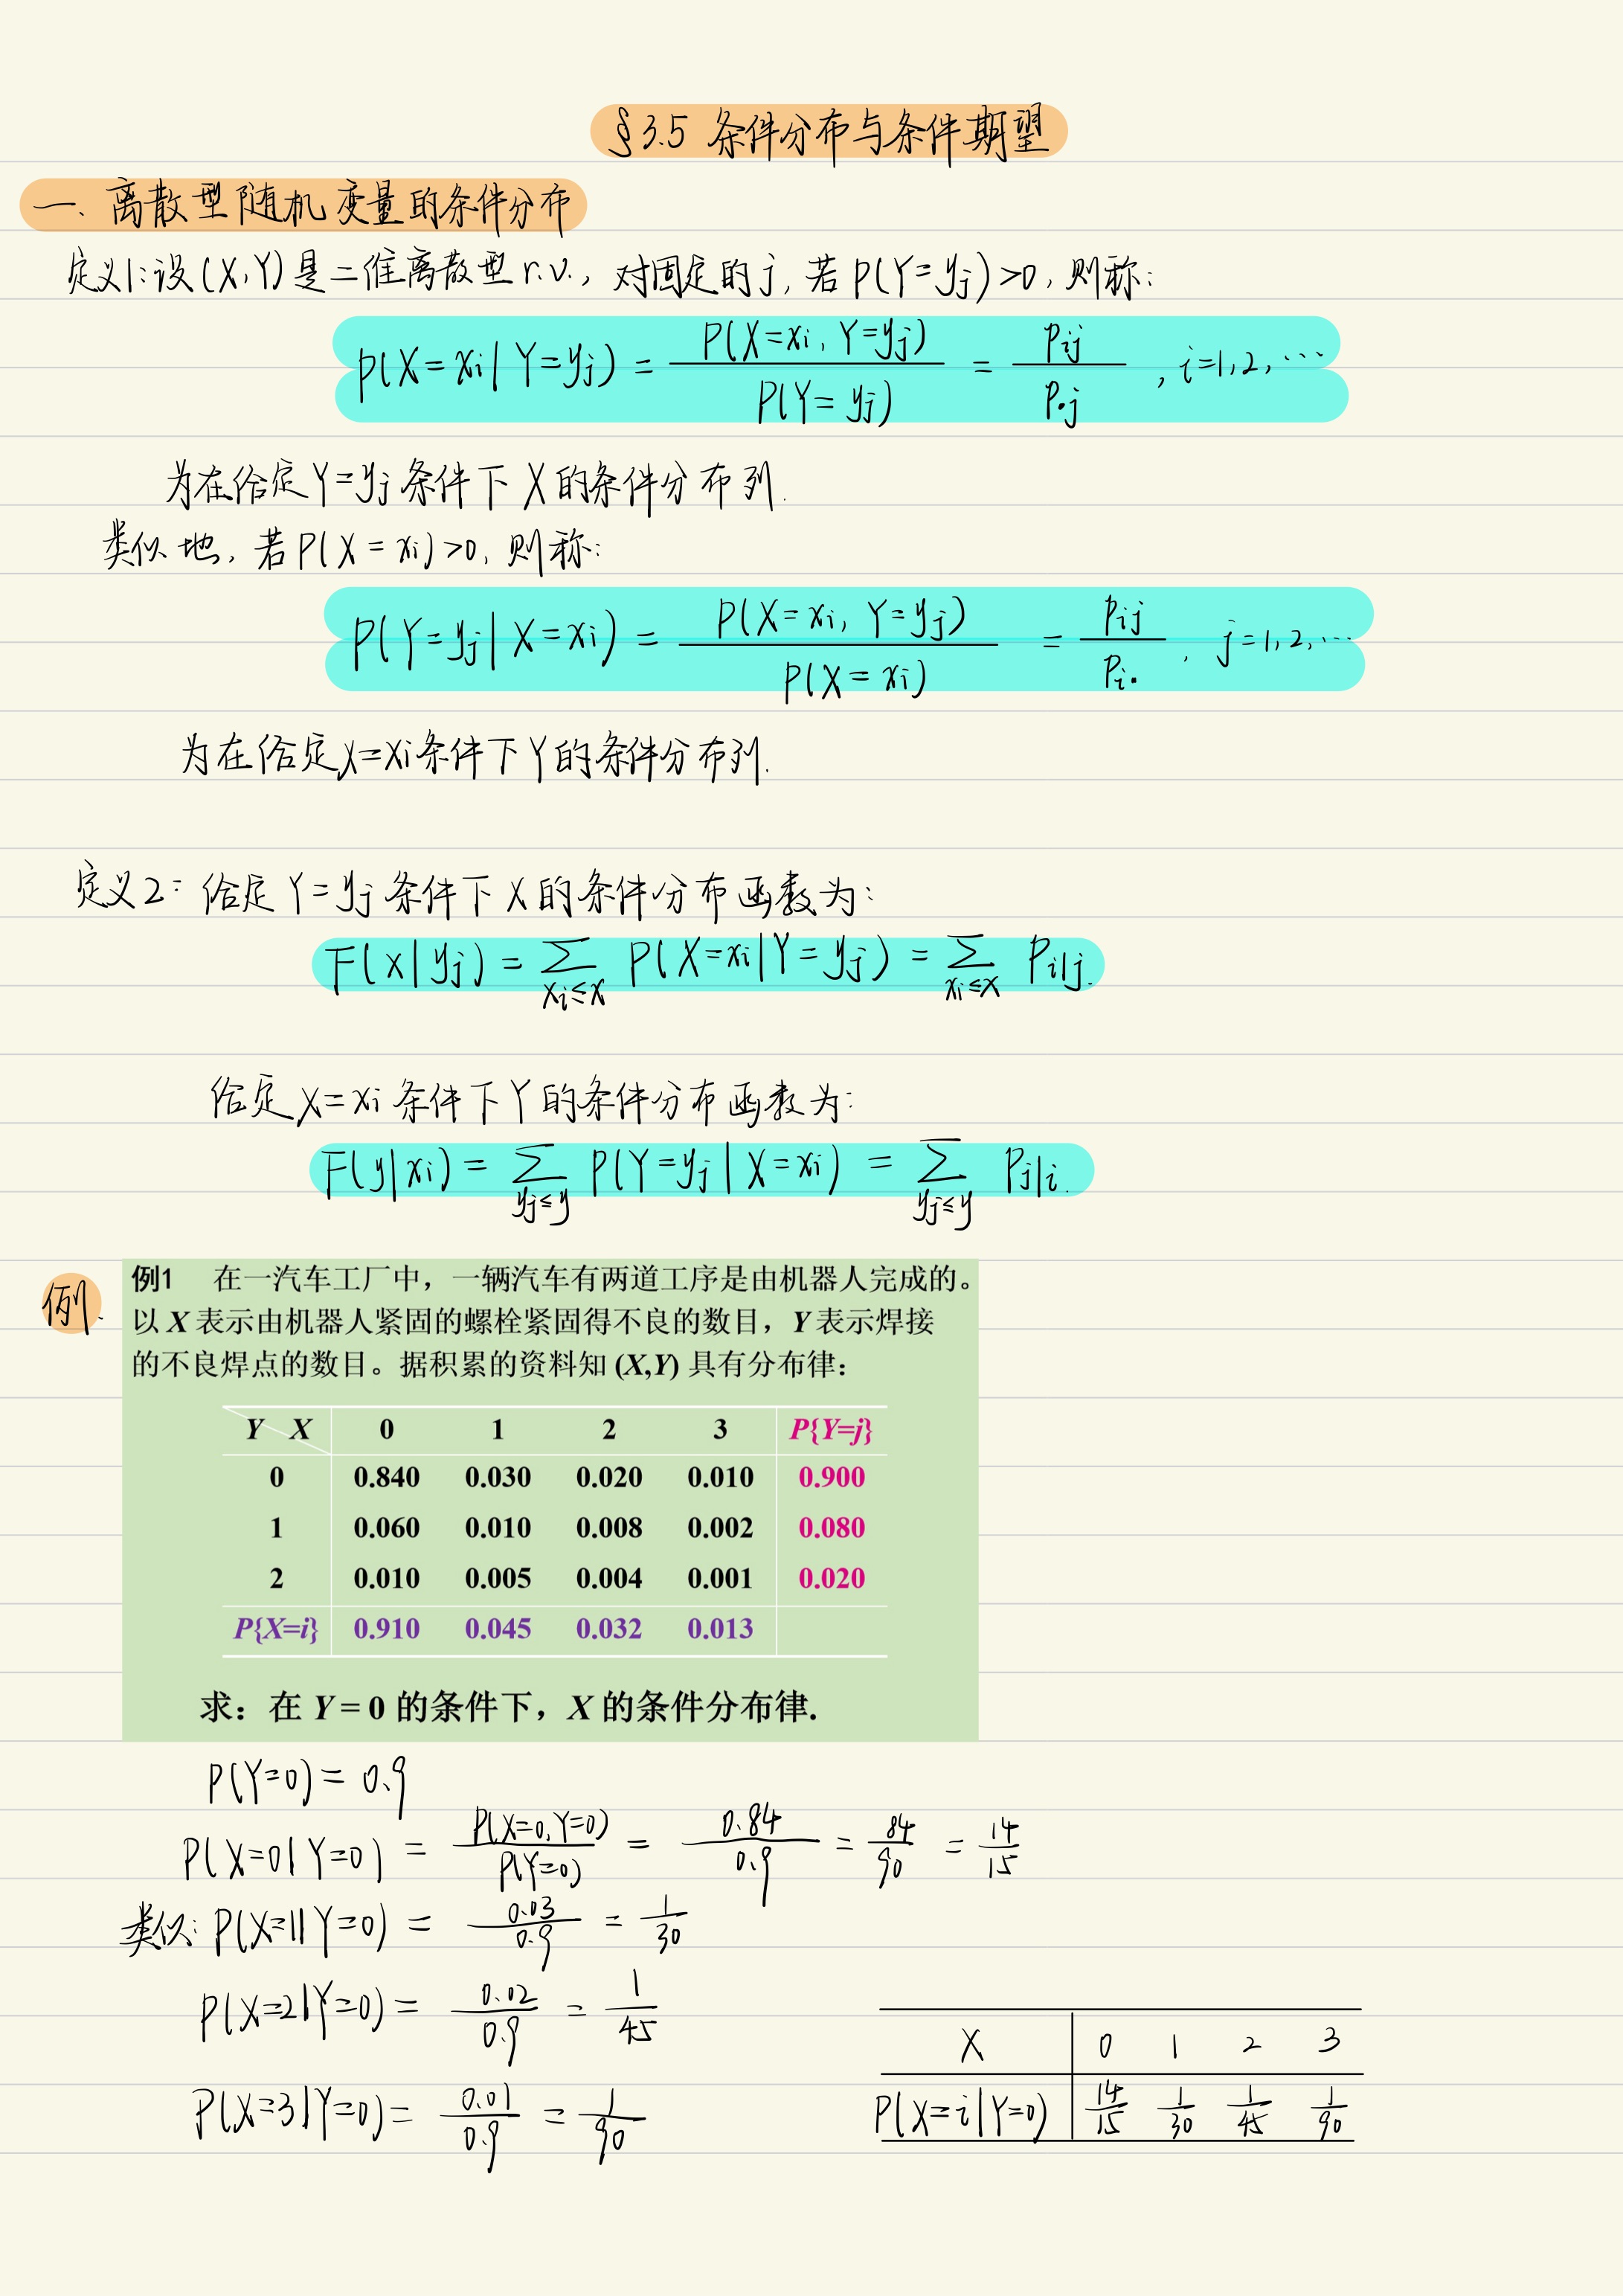 §3.5 条件分布与条件期望
一. 离散型随机变量的条件分布
定义1:设(X,Y)是二维离散型r.v., 对固定的j, 若P(Y=yj)>0, 则称:
P(X=xi|Y=yj) = P(X=xi, Y=yj) / P(Y=yj) = Pij / P•j , i=1,2,…
为在给定Y=yj条件下X的条件分布列.
类似地, 若P(X=xi)>0, 则称:
P(Y=yj|X=xi) = P(X=xi, Y=yj) / P(X=xi) = Pij / Pi• , j=1,2,…
为在给定X=xi条件下Y的条件分布列.
定义2: 给定Y=yj条件下X的条件分布函数为:
F(x|yj) = ∑xi≤x P(X=xi|Y=yj) = ∑xi≤x Pi|j.
给定X=xi条件下Y的条件分布函数为:
F(y|xi) = ∑yj≤y P(Y=yj|X=xi) = ∑yj≤y Pj|i.
例.
例1 在一汽车工厂中，一辆汽车有两道工序是由机器人完成的。
以 X 表示由机器人紧固的螺栓紧固得不良的数目，Y 表示焊接
的不良焊点的数目。据积累的资料知 (X,Y) 具有分布律：
Y X 0 1 2 3 P{Y=j}
0 0.840 0.030 0.020 0.010 0.900
1 0.060 0.010 0.008 0.002 0.080
2 0.010 0.005 0.004 0.001 0.020
P{X=i} 0.910 0.045 0.032 0.013
求：在 Y = 0 的条件下，X 的条件分布律.
P(Y=0) = 0.9
P(X=0|Y=0) = P(X=0,Y=0) / P(Y=0) = 0.84 / 0.9 = 84/90 = 14/15
类似: P(X=1|Y=0) = 0.03 / 0.9 = 1/30
P(X=2|Y=0) = 0.02 / 0.9 = 1/45
P(X=3|Y=0) = 0.01 / 0.9 = 1/90
X 0 1 2 3
P(X=i|Y=0) 14/15 1/30 1/45 1/90